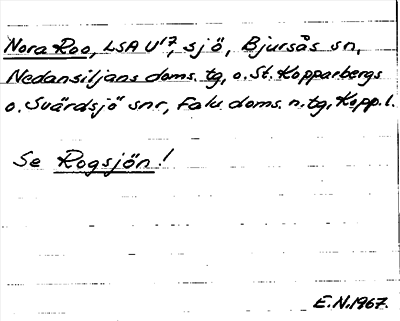 Nora Roo, LSA U17, sjö, Bjursås sn,
Nedansiljans doms. tg, o. St. Kopparbergs
o. Svärdsjö snr, Falu doms. n. tg, Kopp. l.
Se Rogsjön!
E.N.1967.